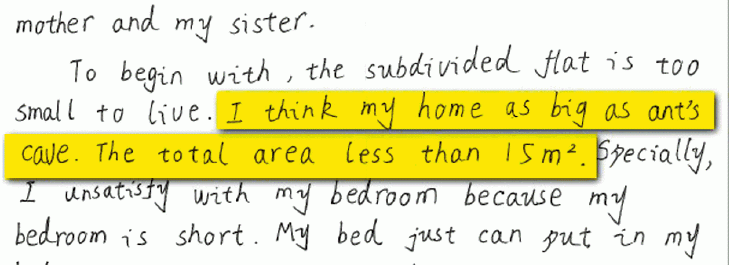 mother and my sister.
To begin with, the subdivided flat is too
small to live. I think my home as big as ant's
cave. The total area less than 15m². Specially,
I unsatisfy with my bedroom because my
bedroom is short. My bed just can put in my